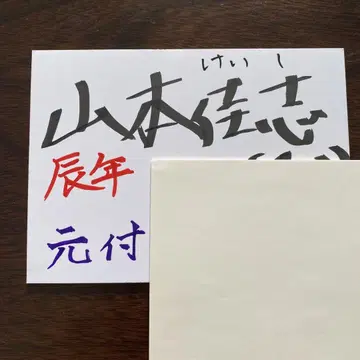 けいし
山本佳志
辰年
元付